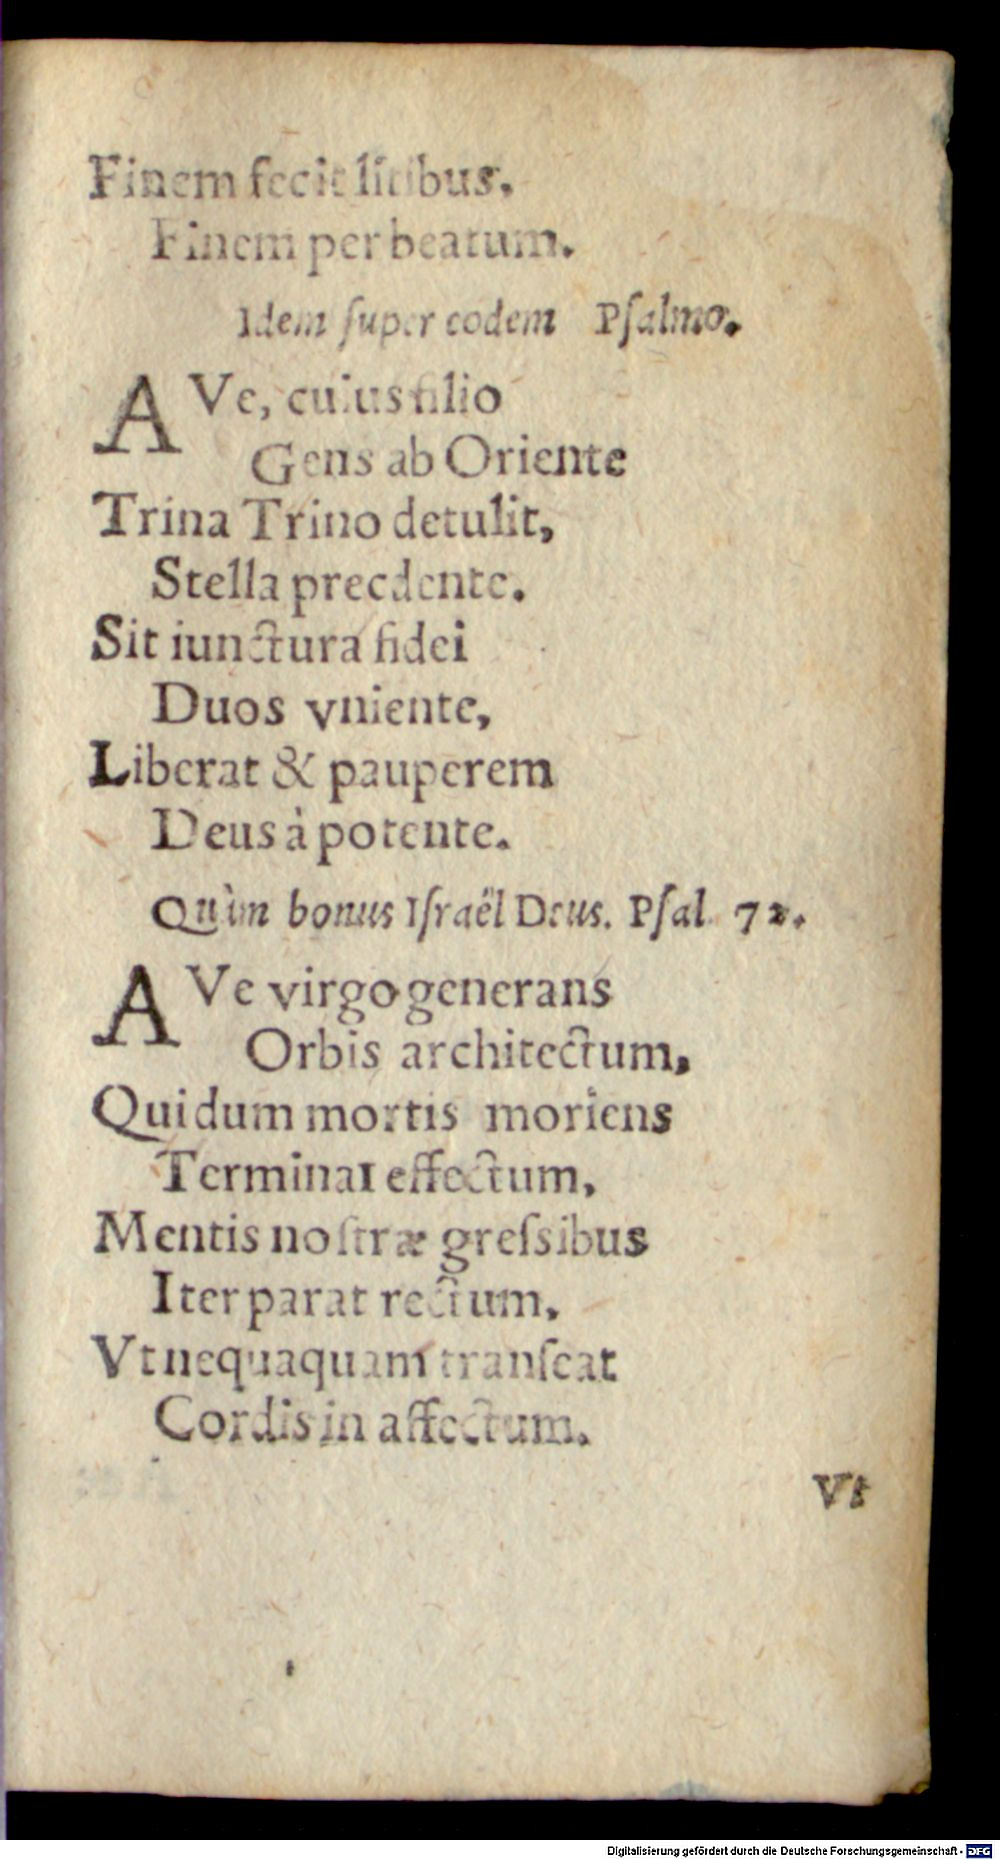 Finem fecit litibus.
Finem per beatum.
Idem ſuper eodem Pſalmo.
AVe, cuius filio
Gens ab Oriente
Trina Trino detulit,
Stella precdente.
Sit iunctura fidei
Duos vniente,
Liberat & pauperem
Deus à potente.
Quàm bonus Iſraël Deus. Pſal. 72.
AVe virgo generans
Orbis architectum,
Qui dum mortis moriens
Terminat effectum,
Mentis noſtræ greſsibus
Iter parat rectum,
Vt nequaquam tranſeat
Cordis in affectum.
Vt
Digitalisierung gefördert durch die Deutsche Forschungsgemeinschaft - DFG